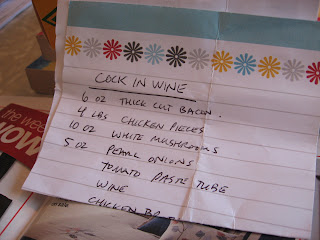 COCK IN WINE
6 OZ THICK CUT BACON.
4 LBS CHICKEN PIECES
10 OZ WHITE MUSHROOMS
5 OZ PEARL ONIONS
TOMATO PASTE TUBE
WINE
CHICKEN
the
NOW